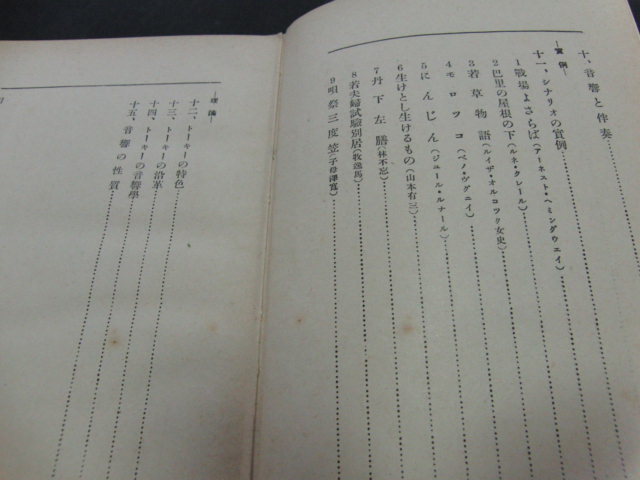 十、音響と伴奏
―實例―
十一、シナリオの實例
1 戰場よさらば(アーネスト・ヘミングウエイ)
2 巴里の屋根の下(ルネ・クレール)
3 若草物語(ルイザ・オルコツト女史)
4 モロツコ(ベノ・ヴグニイ)
5 にんじん(ジユール・ルナール)
6 生けとし生けるもの(山本有三)
7 丹下左膳(林不忘)
8 若夫婦試驗別居(牧逸馬)
9 唄祭三度笠(子母澤寬)
―理論―
十二、トーキーの特色
十三、トーキーの沿革
十四、トーキーの音響學
十五、音響の性質